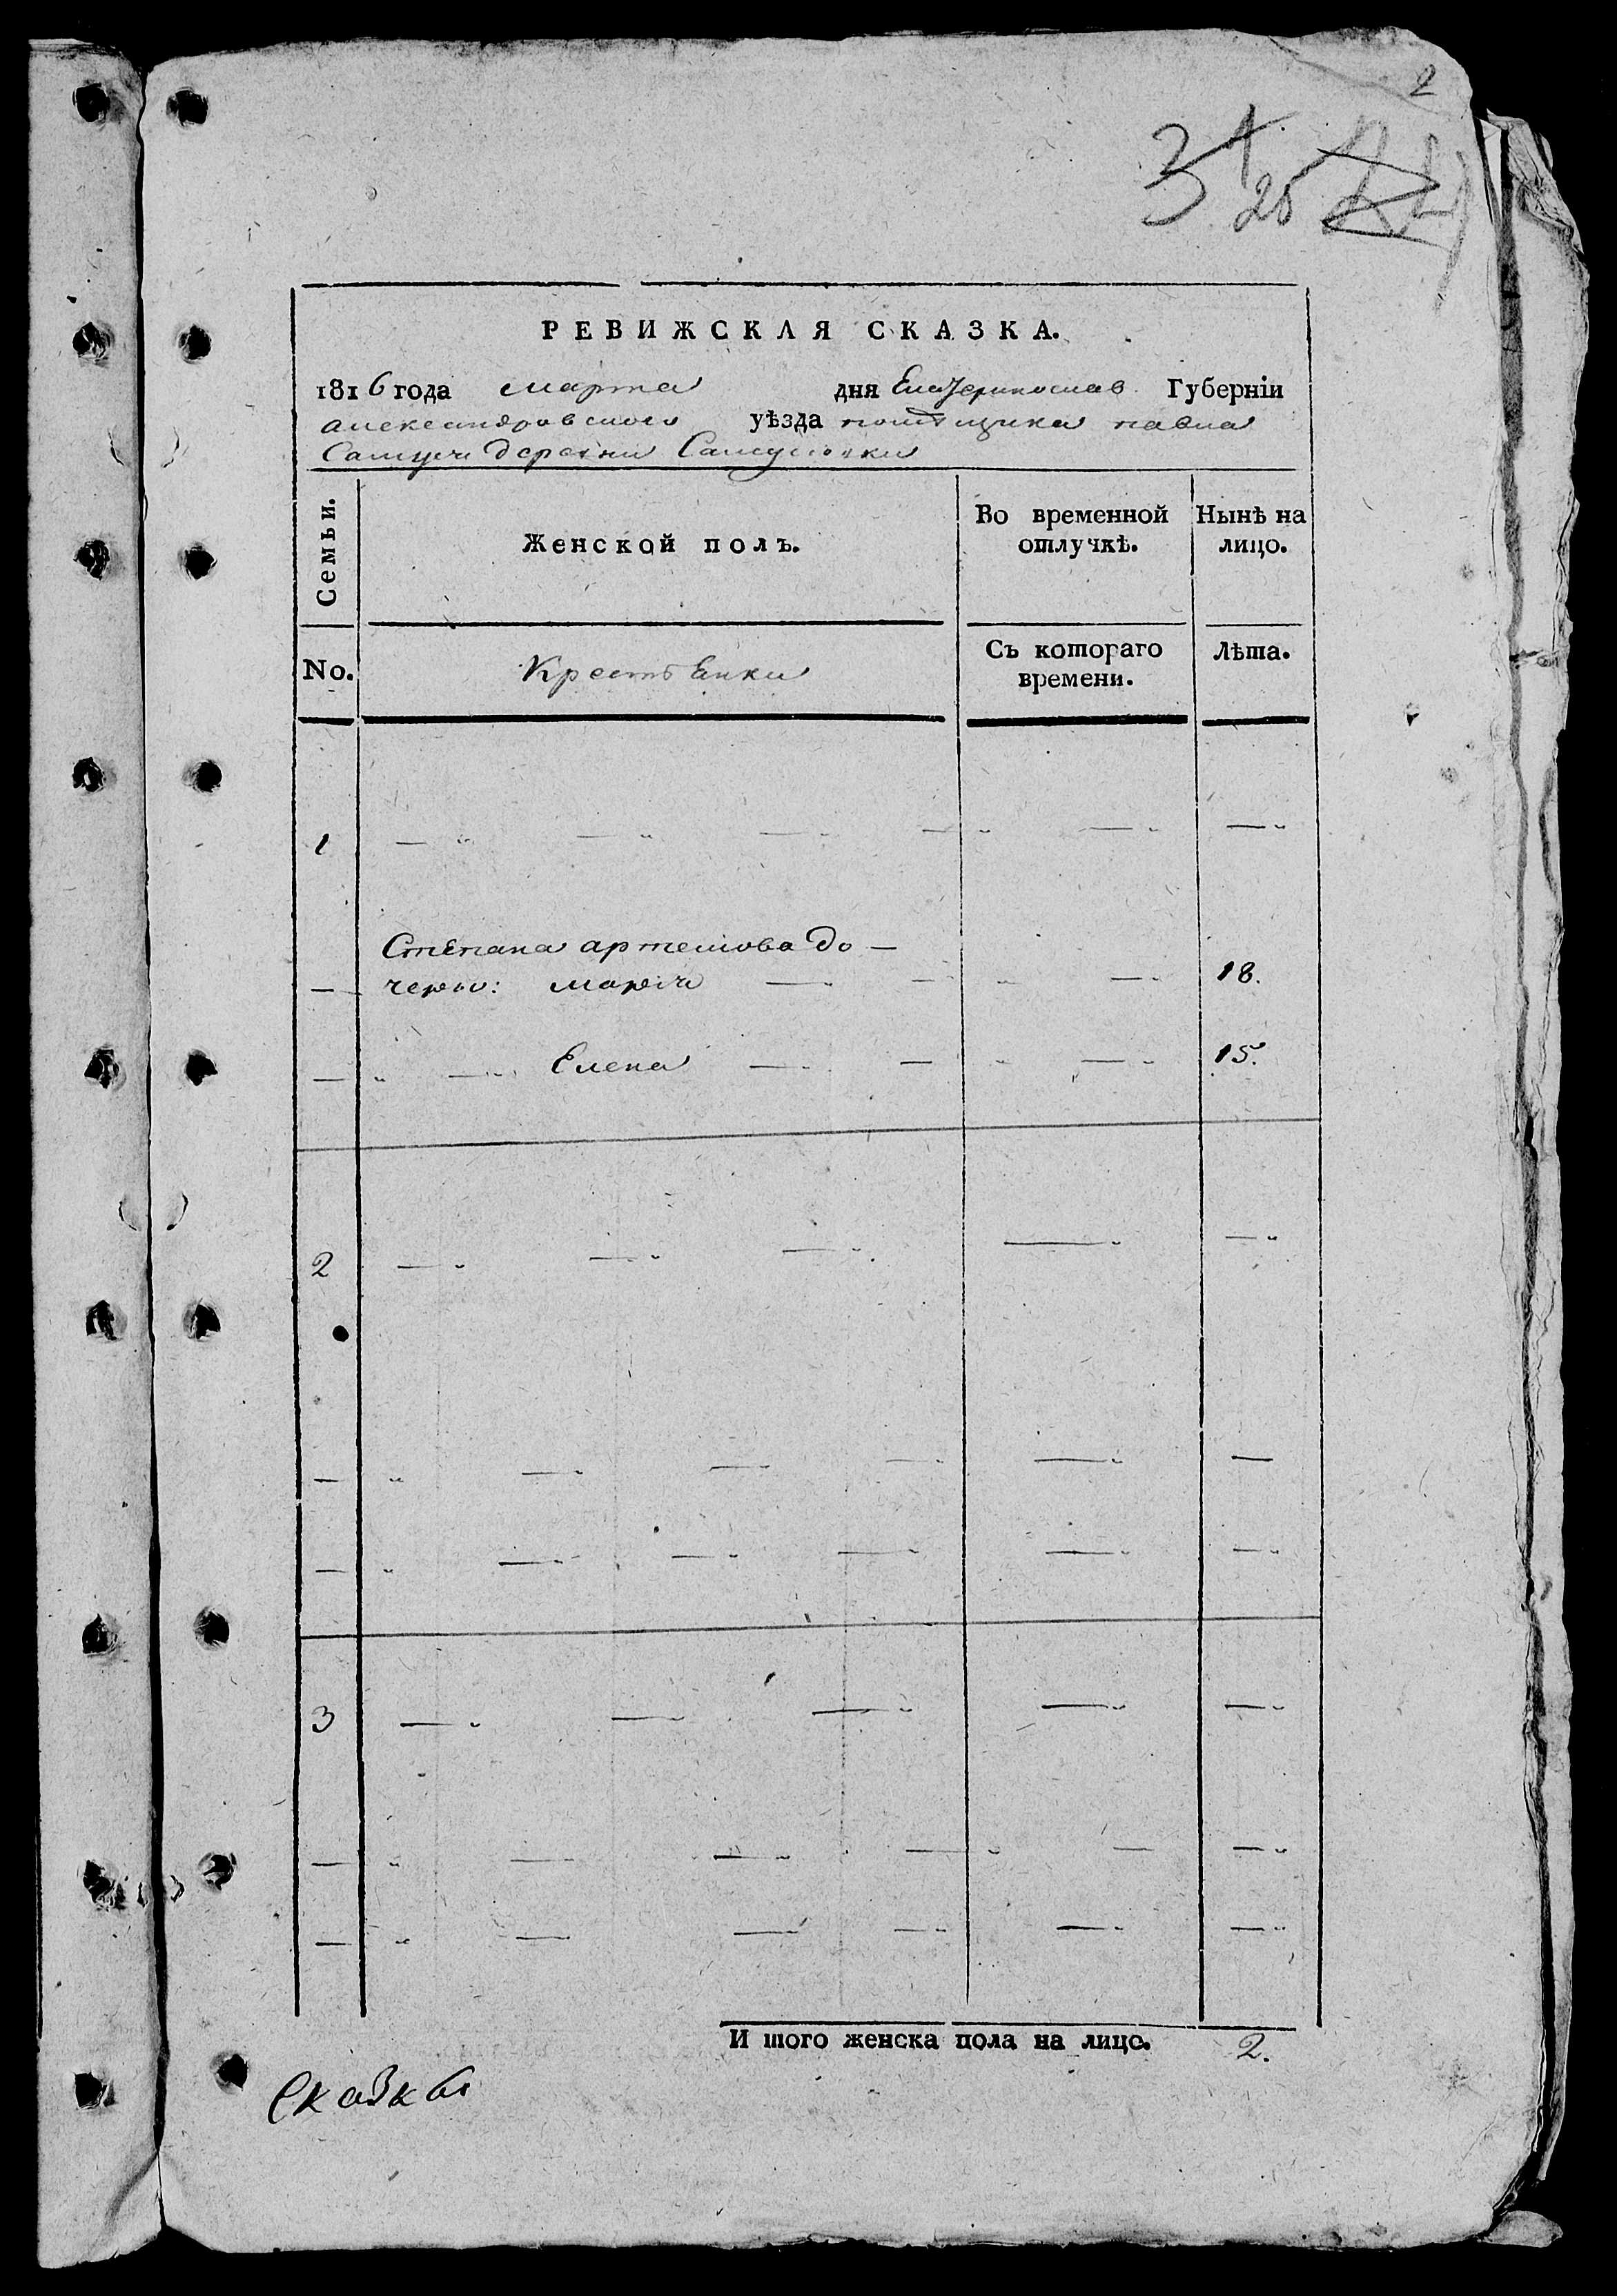 2
3
25
РЕВИЖСКАЯ СКАЗКА.
1816 года марта дня Екатеринослав Губерніи
александровского уѣзда помѣщика павла
деревни
Семьи.
Женской полъ.
Во временной отлучкѣ.
Нынѣ на лицо.
No.
Крестьянки
Съ котораго времени.
Лѣта.
1
Степана артемова до —
черы: марія 18.
Елена 15.
2
3
И того женска пола на лицо. 2.
Сказкы